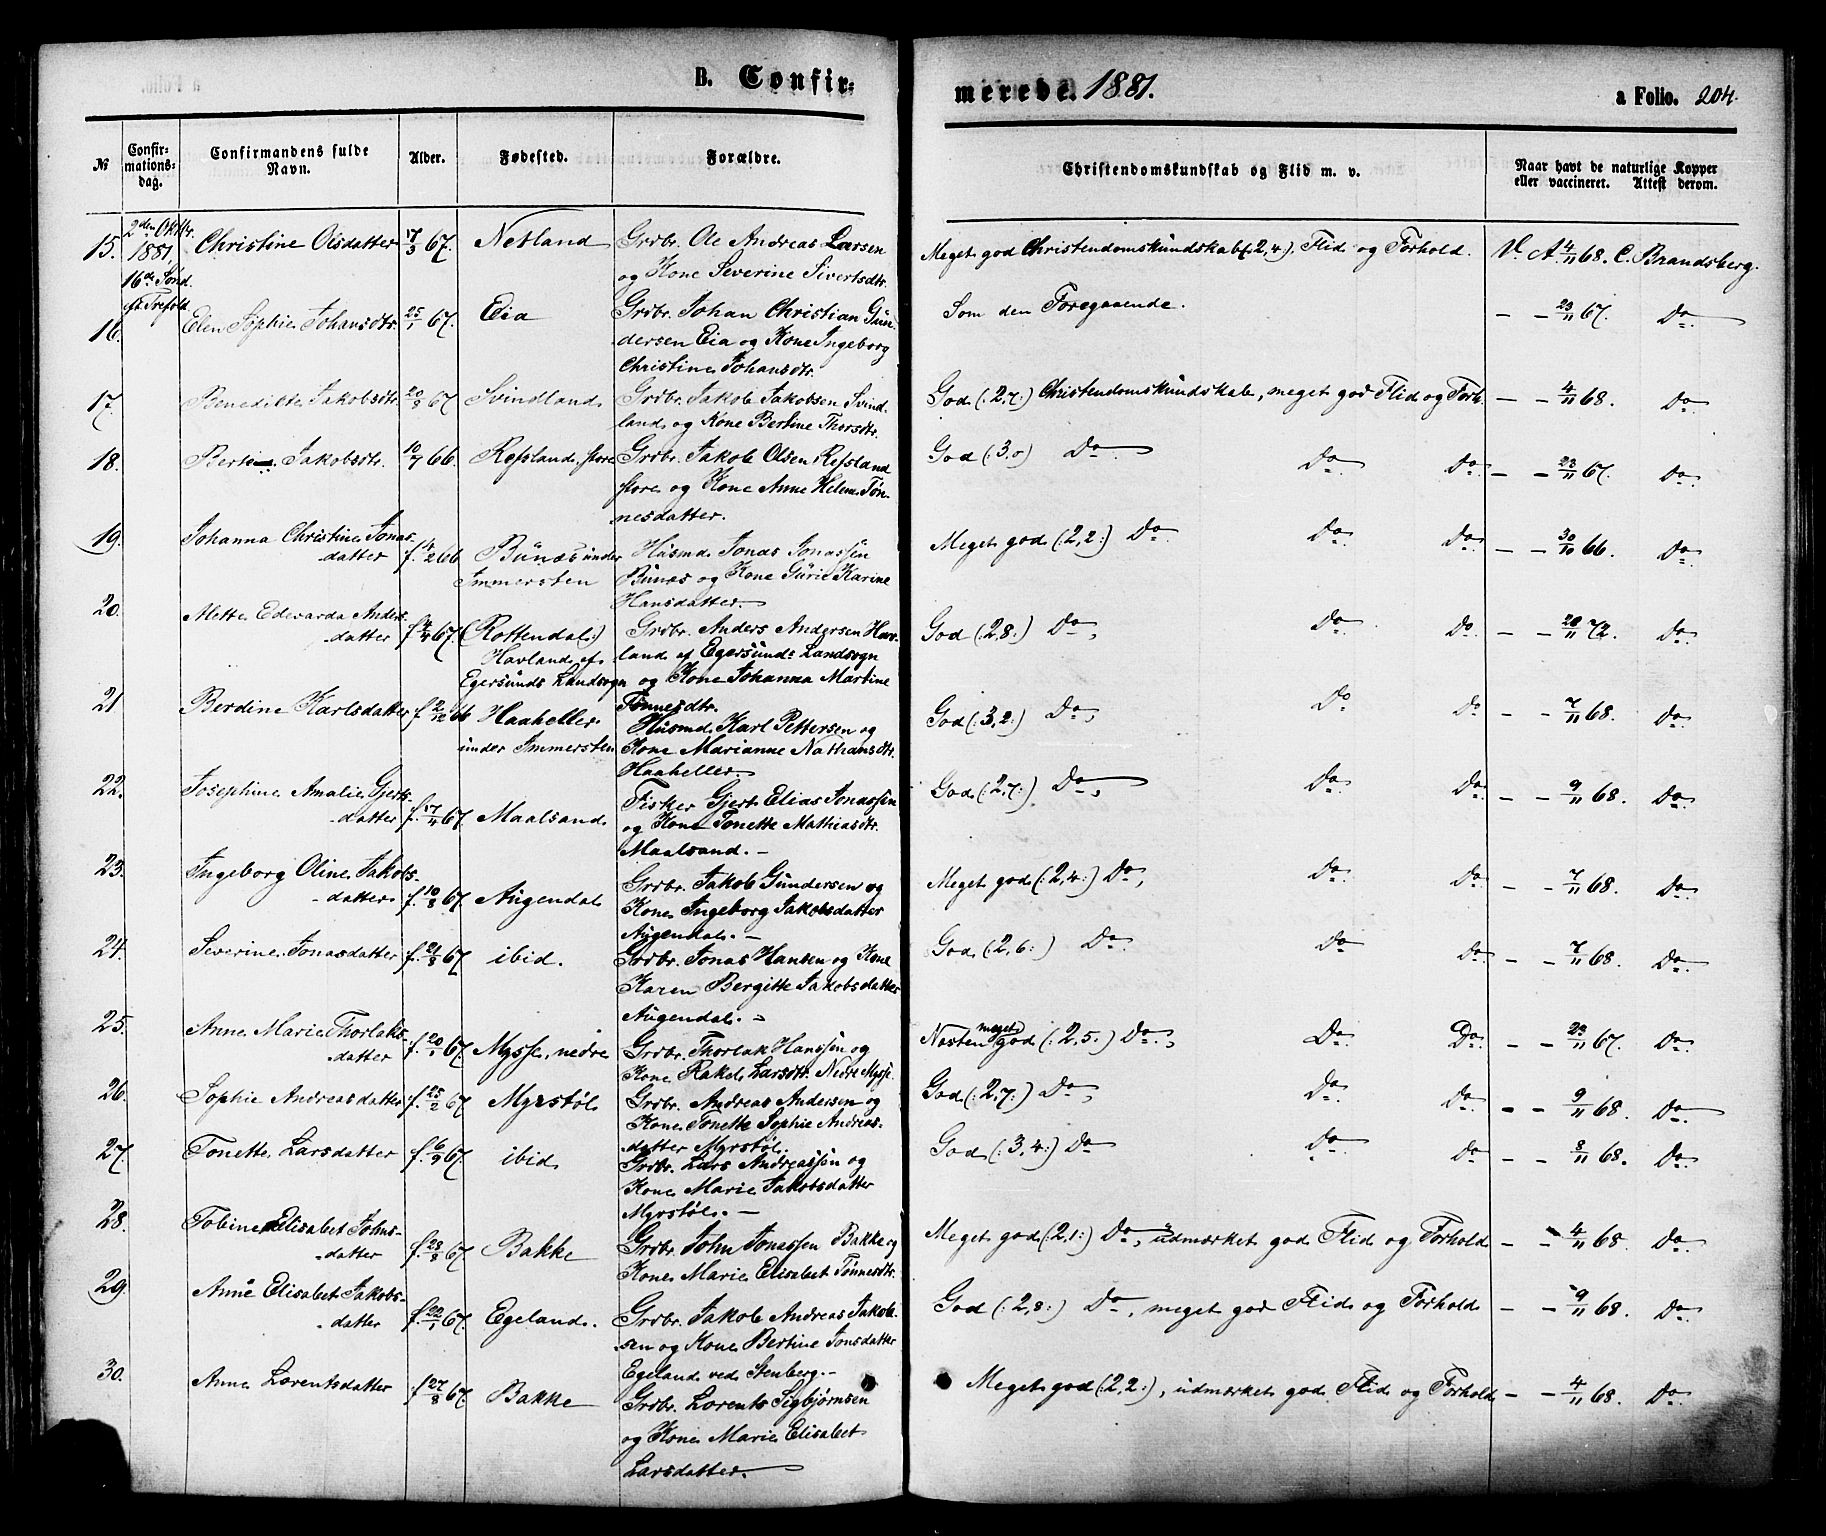 B. Confir=
merede. 1881.
a Folio. 204.
№
Confir=
mations=
dag.
Confirmandens fulde
Navn.
Alder.
Fødested.
Forældre.
Christendomskundskab og Flid m. v.
Naar havt de naturlige Kopper
eller vaccineret. Attest derom.
2den Oktbr.
1881,
16de Sønd.
eft. Trefold.
15. Christine Olsdatter 17/3 67. Netland
Grdbr. Ole Andreas Larsen
og Kone Severine Sivertsdtr.
Meget god Christendomskundskab (2,4). Flid og Forhold. V. A 4/11 68. C. Brandsberg.
16. Elen Sophie Johansdtr. 25/1 67. Eia
Grdbr. Johan Christian Gun-
dersen Eia og Kone Ingeborg
Christine Johansdtr.
Som den Foregaaende. — — 23/11 67. Do.
17. Benedikte Jakobsdtr. 20/8 67 Svindland
Grdbr. Jakob Jakobsen Svind-
land og Kone Bertine Thorsdtr.
God (:2,7:) Christendomskundskab, meget god Flid og Forh. — — 4/11 68. Do.
18. Jakobsdtr. 10/7 66. Refsland, store
Grdbr. Jakob Olsen Refsland
store og Kone Anne Helene Tøn-
nesdatter.
God (:3,0) Do Do. Do. — — 23/11 67. Do.
19. Johanna Christine Jonas-
datter f. 4/2 66 Bunæs under
Immersten
Husmd. Jonas Jonassen
Bunæs og Kone Gurie Karine
Hansdatter.
Meget god (:2,2:) Do. Do. Do. — — 30/10 66. Do.
20. Mette Edevarda Anders-
datter f. 4/4 67. (Rottendal:)
Havland af
Egersunds Landsogn
Grdbr. Anders Andersen Hav-
land af Egersunds Landsogn
og Kone Johanna Martine
Tønnesdtr.
God (:2,8:) Do, Do. Do. — — 20/11 72. Do.
21 Berdine Karlsdatter f. 2/12 66 Haaheller
under Immersten
Husmd. Karl Pettersen og
Kone Marianne Nathansdtr.
Haaheller.
God (:3,2:) Do, Do Do. — — 7/11 68. Do.
22. Josephine Amalie Gjerts-
datter f. 17/11 67. Maalsand.
Fisker Gjert Elias Jonassen
og Kone Tonette Mathiasdtr.
Maalsand. —
God (:2,7:) Do, Do. Do. — — 9/11 68. Do.
23. Ingeborg Oline Jakobs-
datter f. 10/8 67 Augendal
Grdbr. Jakob Gundersen og
Kone Ingeborg Jakobsdatter
Augendal. —
Meget god (:2,4:) Do, Do. Do. — — 7/11 68. Do.
24. Severine Jonasdatter f. 21/8 67 ibid.
Grdbr. Jonas Hansen og Kone
Karen Bergitte Jakobsdatter
Augendal. —
God (:2,6:) Do. Do Do. — — 7/11 68. Do.
25. Anne Marie Thorlaks-
datter f. 20/1 67. Mysse, nedre
Grdbr. Thorlak Hanssen og
Kone Rakel Larsdtr. Nedre Mysse.
Næsten meget god (:2,5:) Do., Do. Do. — — 23/11 67. Do.
26. Sophie Andreasdatter f. 25/2 67 Myrstøl
Grdbr. Andreas Andersen og
Kone Tonette Sophie Andreas-
datter Myrstøl.
God (:2,7:) Do, Do. Do. — — 9/11 68. Do.
27. Tonette Larsdatter f. 6/9 67. ibid.
Grdbr. Lars Andreassen og
Kone Marie Jakobsdatter
Myrstøl. —
God (:3,4:) Do Do. Do — — 8/11 68. Do.
28. Tobine Elisabet Johns-
datter f. 23/3 67. Bakke
Grdbr. John Jonassen Bakke og
Kone Marie Elisabet Tønnesdtr.
Meget god (2,1:) Do, udmærket god Flid og Forhold — — 4/11 68. Do.
29. Anne Elisabet Jakobs-
datter f. 22/1 67. Egeland.
Grdbr. Jakob Andreas Jakob-
sen og Kone Bertine Jonsdatter
Egeland ved Stenberg. —
God (:2,8:) Do, meget god Flid og Forhold — — 9/11 68. Do.
30. Anne Lorentsdatter f. 27/8 67. Bakke
Grdbr. Lorents Sigbjørnsen
og Kone Marie Elisabet
Larsdatter.
Meget god (:2,2:), udmærket god Flid og Forhold — — 4/11 68. Do.